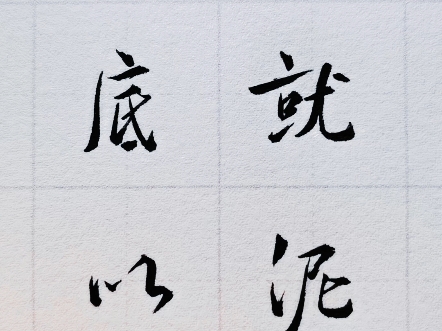 底就
以泥